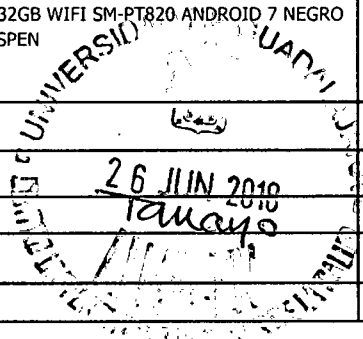 32GB WIFI SM-PT820 ANDROID 7 NEGRO
SPEN
UNIVERSID
GUADALAJ
26 JUN 2018
Tamayo